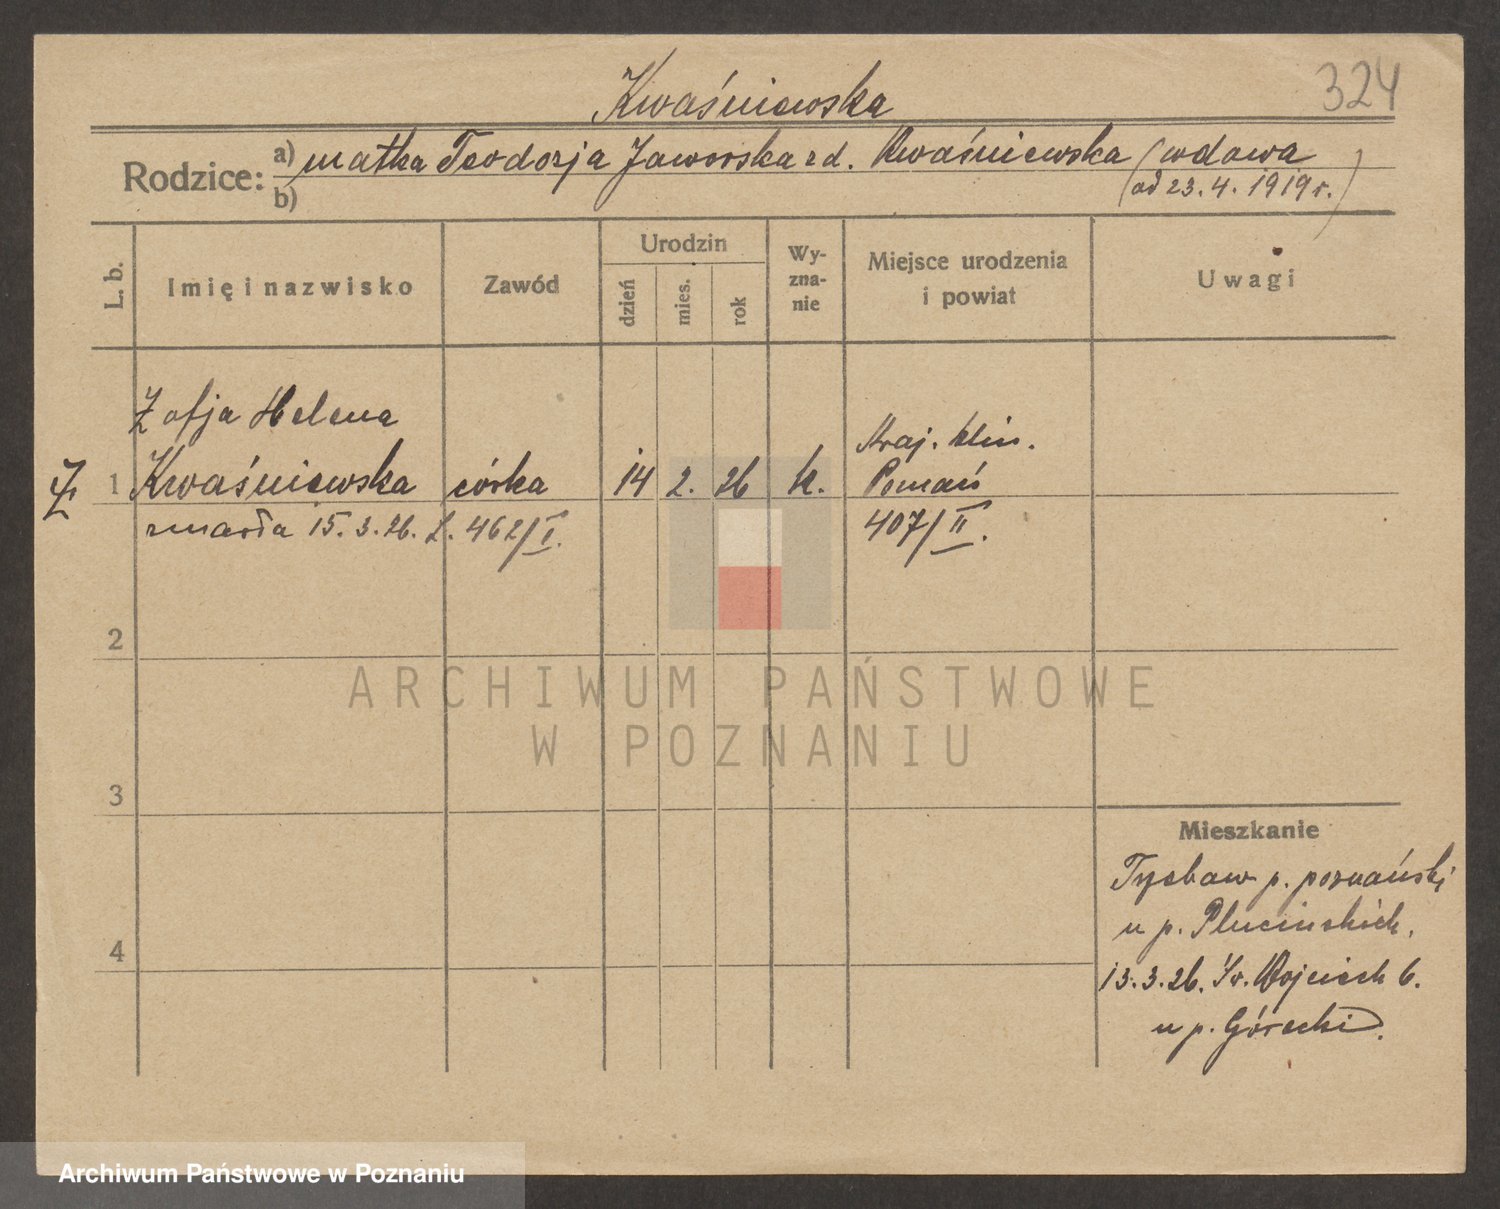 324
Kwaśniewska
Rodzice:
a) matka Teodozja Jaworska zd. Kwaśniewska (wdowa
b) (od 23.4.1919 r.)
L. b.
Imię i nazwisko
Zawód
Urodzin
dzień
mies.
rok
Wy-
zna-
nie
Miejsce urodzenia
i powiat
Uwagi
Zofja Helena
Ż 1 Kwaśniewska córka 14 2. 26 k.
Kraj. klin.
Poznań
407/II.
zmarła 15.3.26. L. 462/I.
2
3
4
Mieszkanie
p. poznański
u p. Plucińskich.
13.3.26. Św. Wojciech 6.
u p. Górecki.
ARCHIWUM PAŃSTWOWE
W POZNANIU
Archiwum Państwowe w Poznaniu